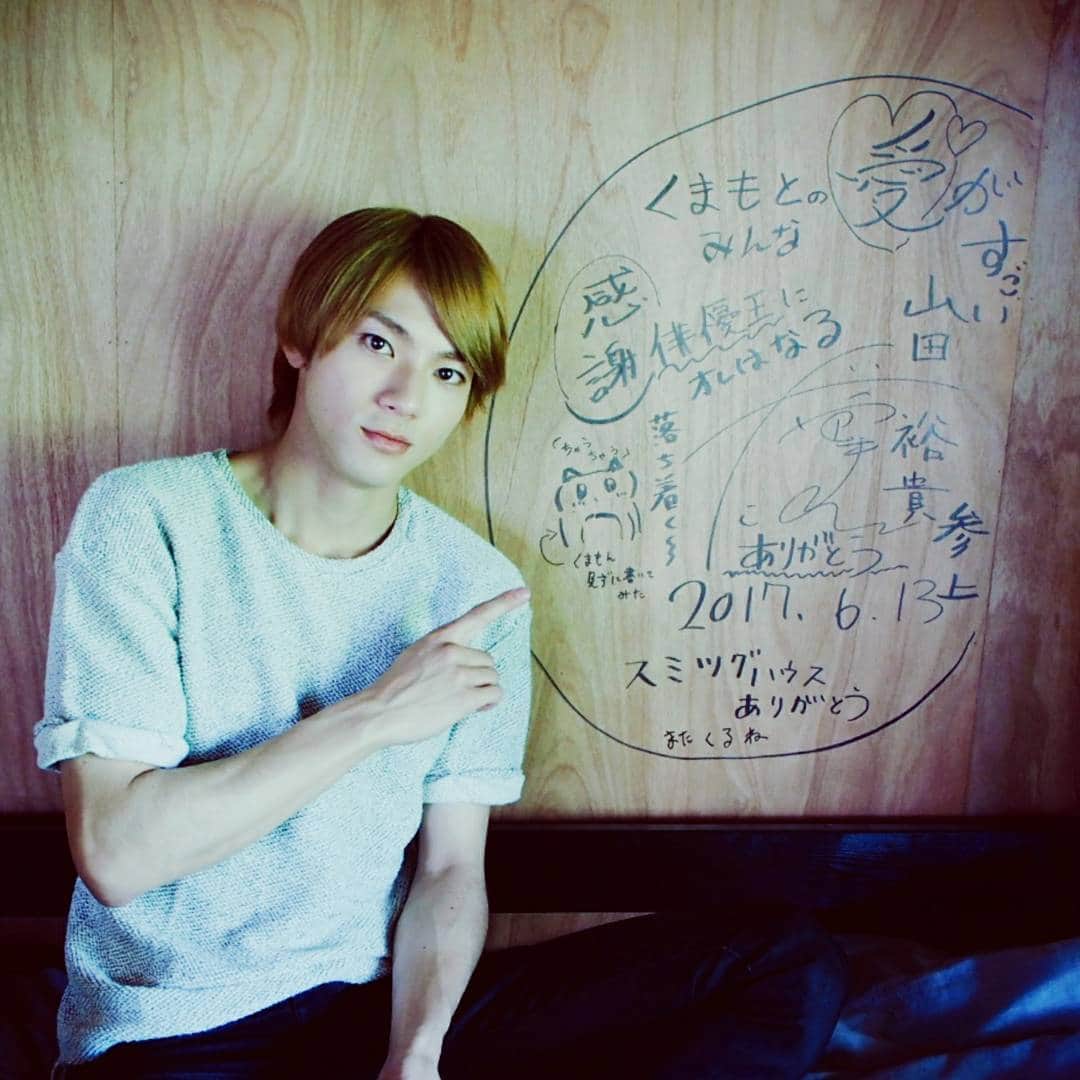 くまもとの
みんな
愛
がすごい
感謝
俳優王に
オレはなる
山田
裕貴
参上
落ち着くぅ
くまモン
見ずに書いて
みた
ありがとう
2017.6.13
スミツグハウス
ありがとう
またくるね